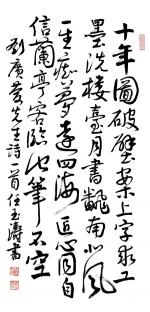 十年圖破壁案上字求工
墨洗樓臺月書南北風
一生痴夢遠四海匠心同自
信蘭亭客臨池筆不空
劉廣先生詩一首任玉濤書